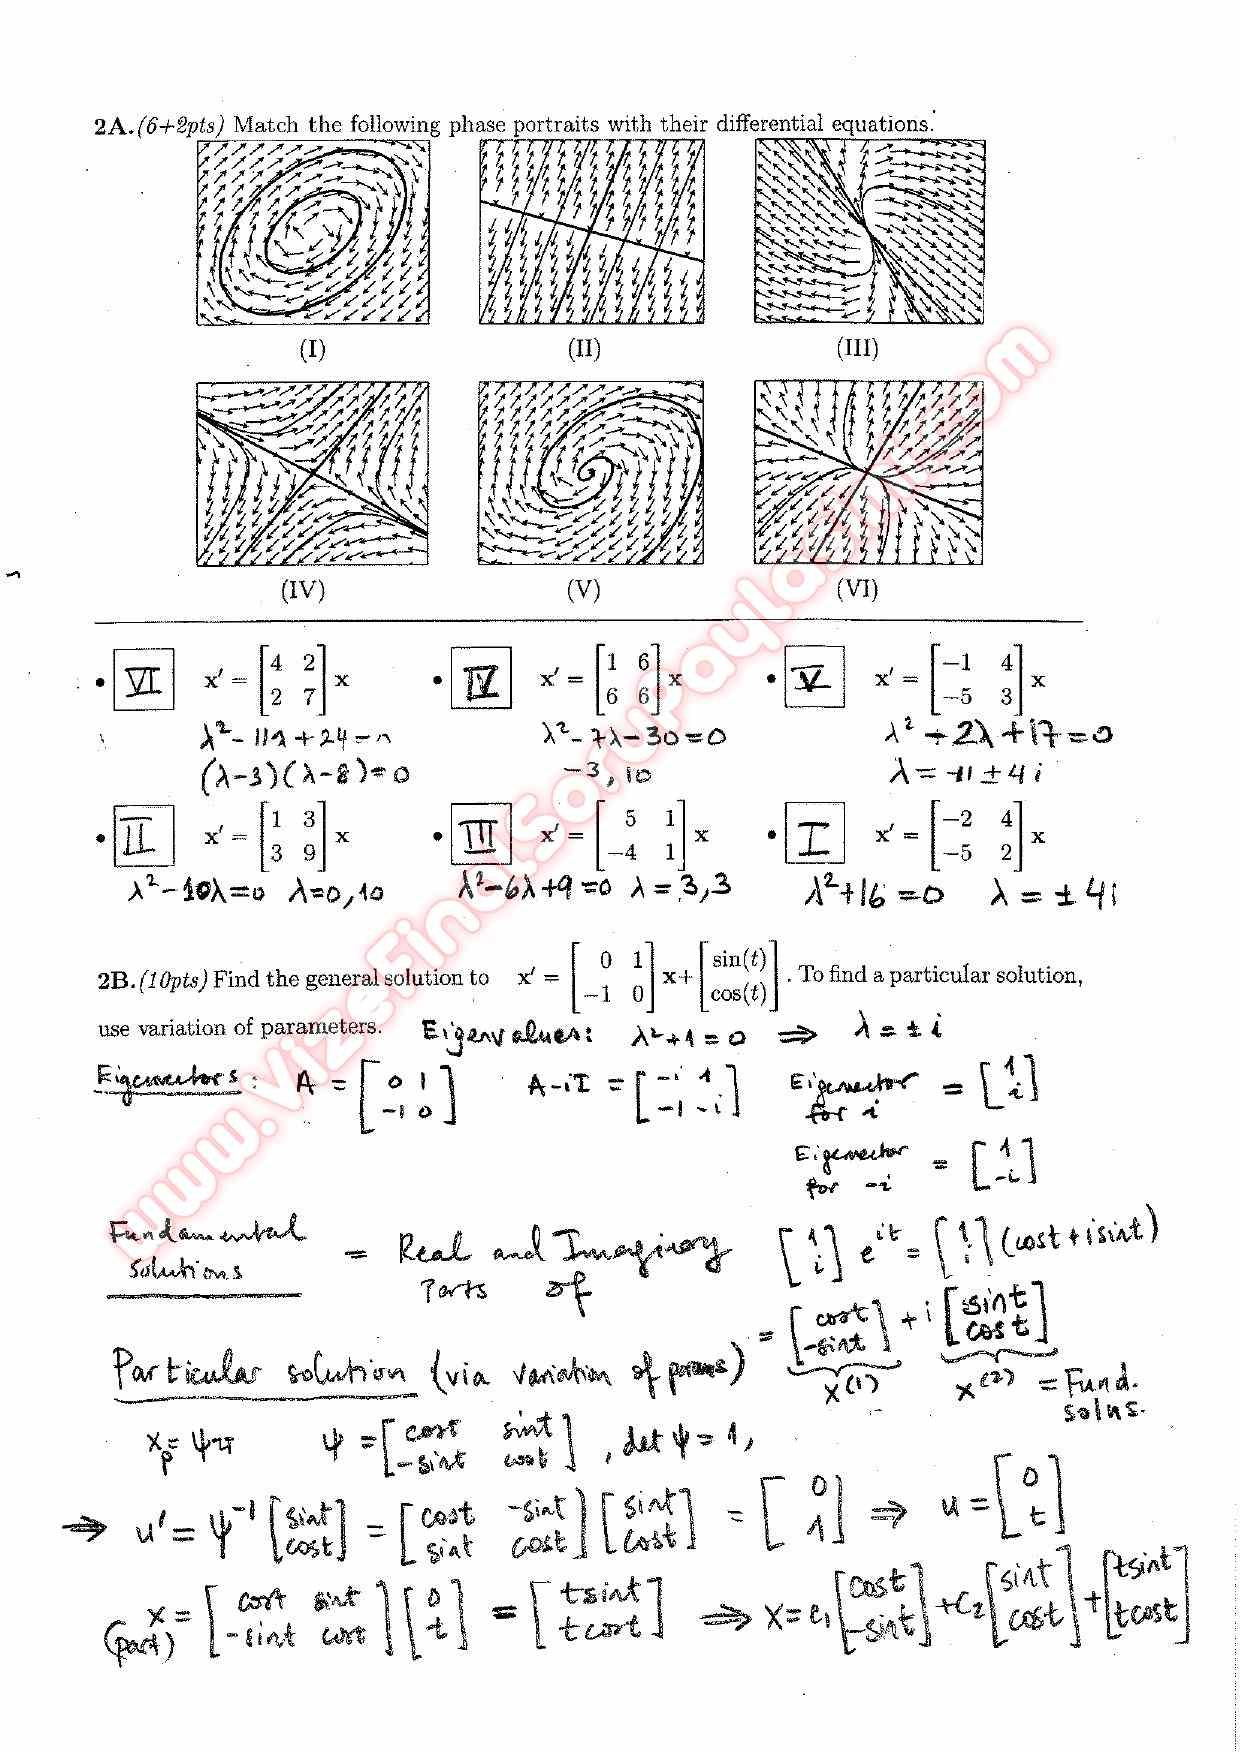 2A. (6+2pts) Match the following phase portraits with their differential equations.
(I) (II) (III)
(IV) (V) (VI)
• VI x′ = [4 2; 2 7] x • IV x′ = [1 6; 6 6] x • V x′ = [−1 4; −5 3] x
λ²−11λ+24=0 λ²−7λ−30=0 λ²÷2λ+17=0
(λ−3)(λ−8)=0 −3, 10 λ = ± 4i
• II x′ = [1 3; 3 9] x • III x′ = [5 1; −4 1] x • I x′ = [−2 4; −5 2] x
λ²−10λ=0 λ=0,10 λ²−6λ+9=0 λ=3,3 λ²+16=0 λ = ± 4i
2B. (10pts) Find the general solution to x′ = [0 1; −1 0] x + [sin(t); cos(t)]. To find a particular solution,
use variation of parameters. Eigenvalues: λ²+1=0 ⇒ λ=±i
Eigenvectors: A = [0 1; −1 0] A−iI = [−i 1; −1 −i] Eigenvector for i = [1; i]
Eigenvector for −i = [1; −i]
Fundamental Solutions = Real and Imaginary Parts of [1; i] e^{it} = [1; i] (cost+isint)
= [cost; −sint] + i [sint; cost]
x^(1) x^(2) = Fund. solns.
Particular solution (via variation of params)
x_p = ψu ψ = [cost sint; −sint cost], det ψ = 1,
⇒ u′ = ψ^−1 [sint; cost] = [cost −sint; sint cost] [sint; cost] = [0; 1] ⇒ u = [0; t]
x (part) = [cost sint; −sint cost] [0; t] = [tsint; tcost] ⇒ x = c₁ [cost; −sint] + c₂ [sint; cost] + [tsint; tcost]
www.VizeFinalSoruPaylasimi.com